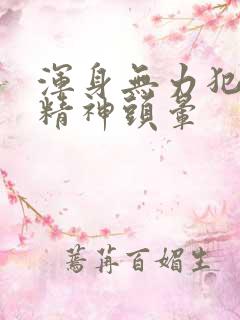 渾身無力犯
精神頭暈
蔷苒百媚生